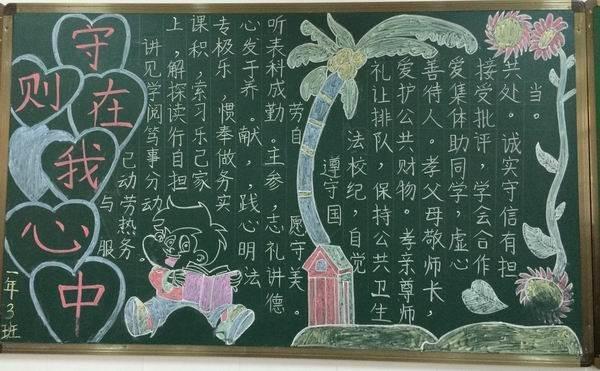 守则在我心中
一年3班
上课专心听
讲，积极发表
见解，乐于科
学探索，养成
阅读习惯。勤劳
笃行乐奉献。自
己事自己做，主
动分担家务，参
与劳动实践，热心志愿
服务。明礼守
法讲美
德。
遵守国
法校纪，自觉
礼让排队，保持公共卫生
爱护公共财物。孝亲尊师
善待人。孝父母敬师长，
爱集体助同学，虚心
接受批评，学会合作
共处。诚实守信有担
当。